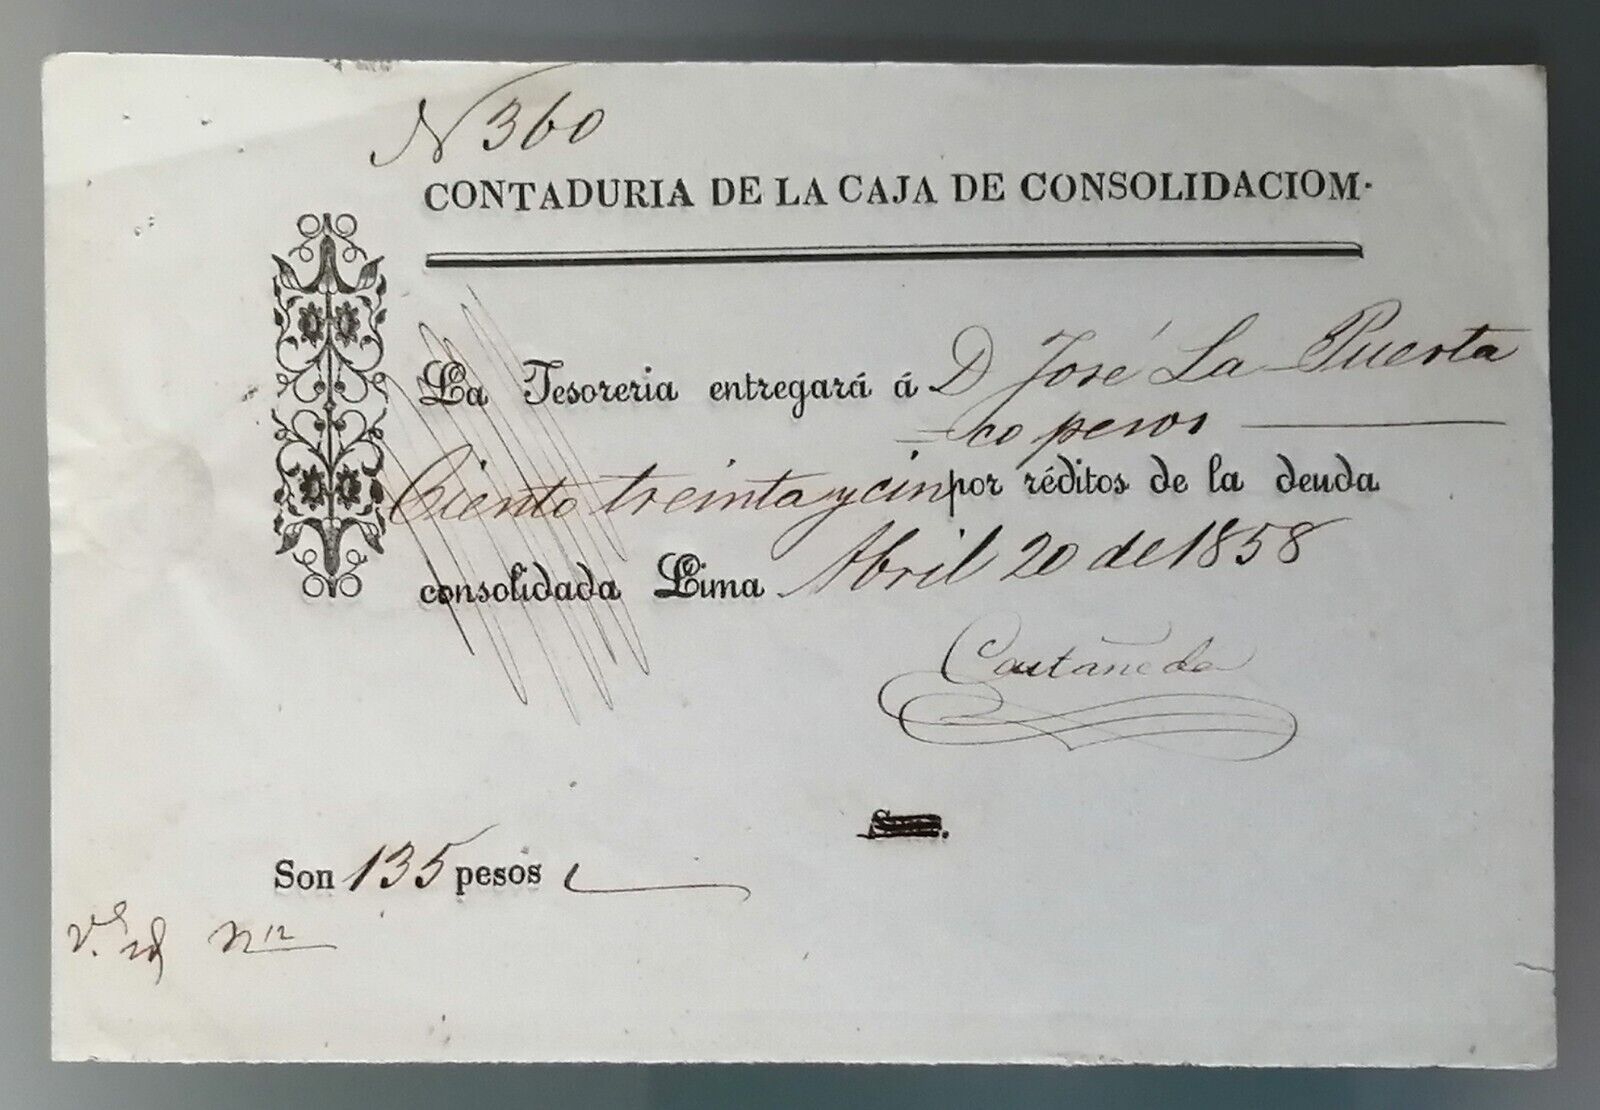 N 360
CONTADURIA DE LA CAJA DE CONSOLIDACIOM.
La Tesoreria entregará á D José La Puerta
Ciento treinta y cin=co pesos por réditos de la deuda
consolidada Lima Abril 20 de 1858
Castañeda
Son 135 pesos